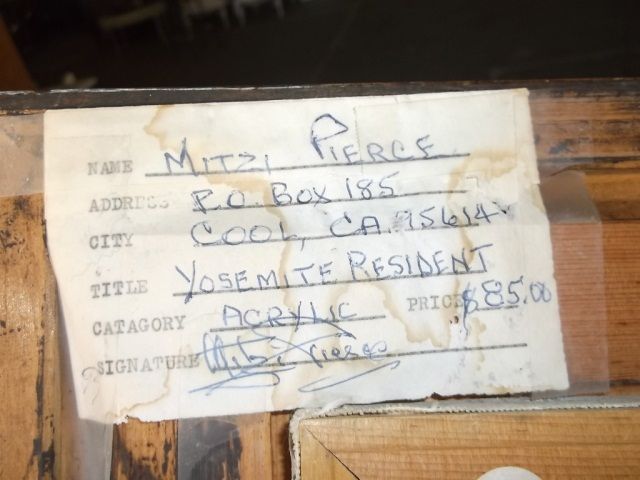 NAME MITZI PIERCE
ADDRESS P.O. BOX 185
CITY COOL, CA. 95614
TITLE YOSEMITE RESIDENT
CATAGORY ACRYLIC PRICE $85.00
SIGNATURE Mitzi Pierce